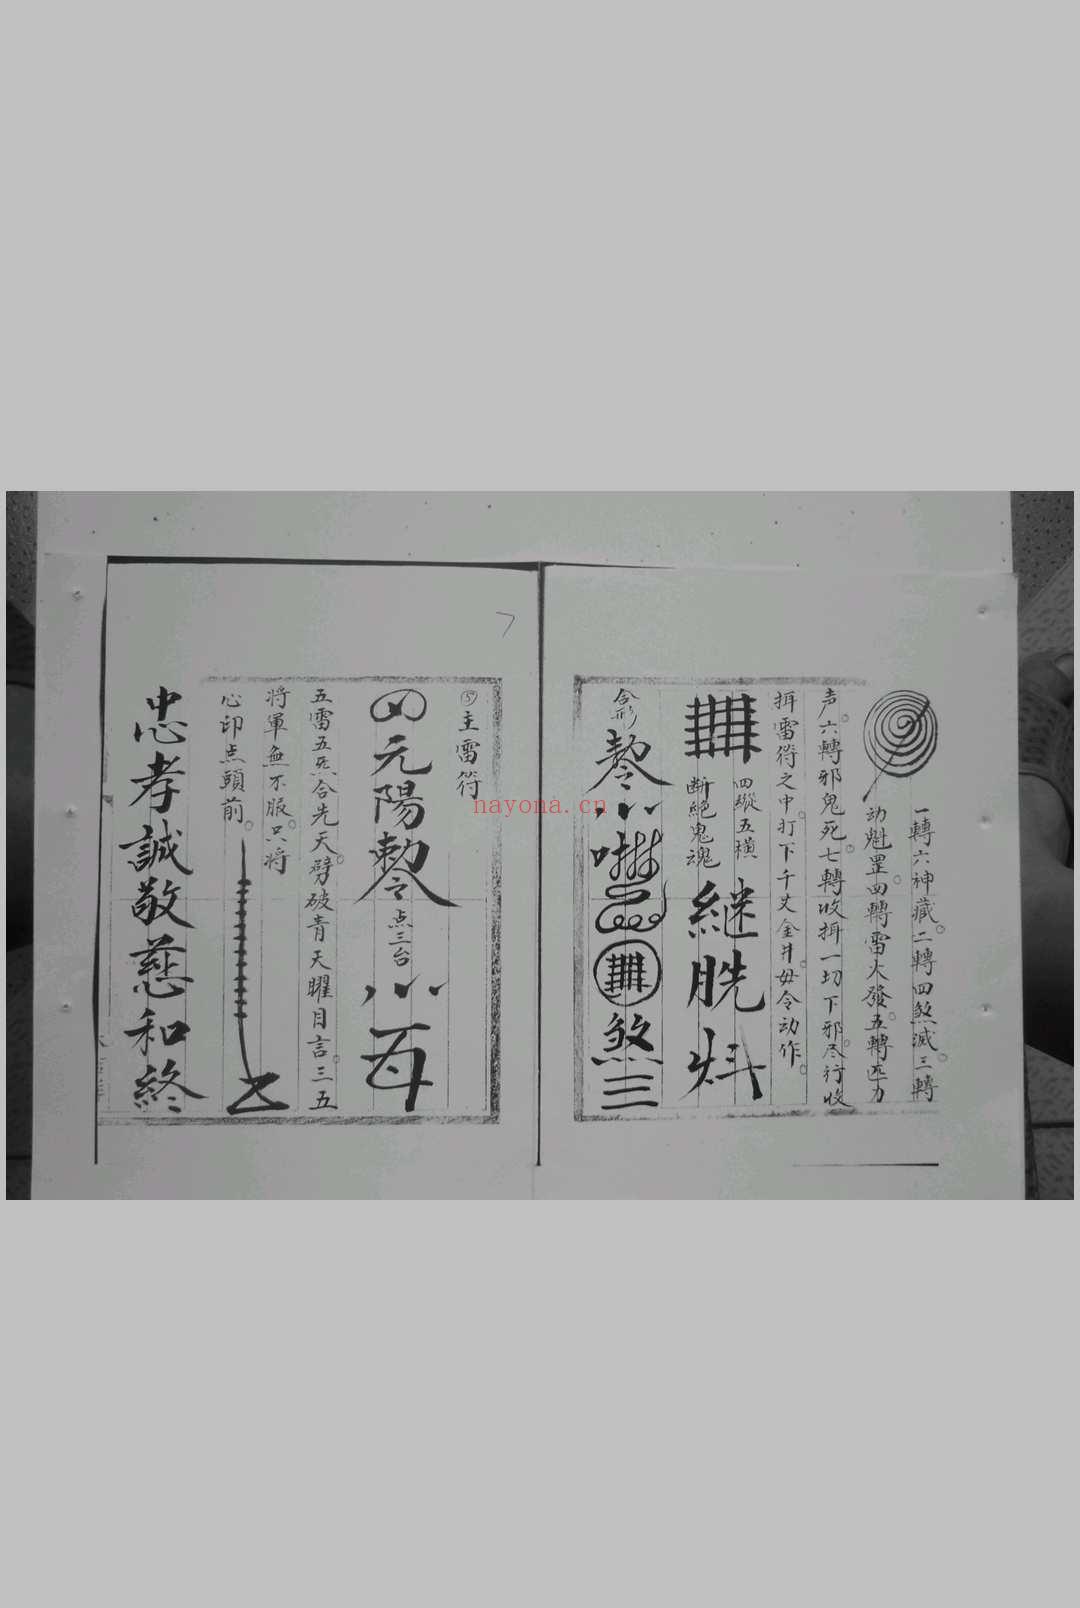 一轉六神藏。二轉四煞滅。三轉
动魁罡。四轉雷火發。五轉匹力
声。六轉邪鬼死。七轉收
一切下邪。尽行收
雷符之中。打下千丈金井。毋令动作。
四縱五橫
断絕鬼魂
合形
煞
三
⑤主雷符
元陽勅令
点三台
五雷五炁合先天。劈破青天曜目言。三五
將軍無不服。只將
心印点頭前。
忠孝誠敬慈和終
7
nayona.cn